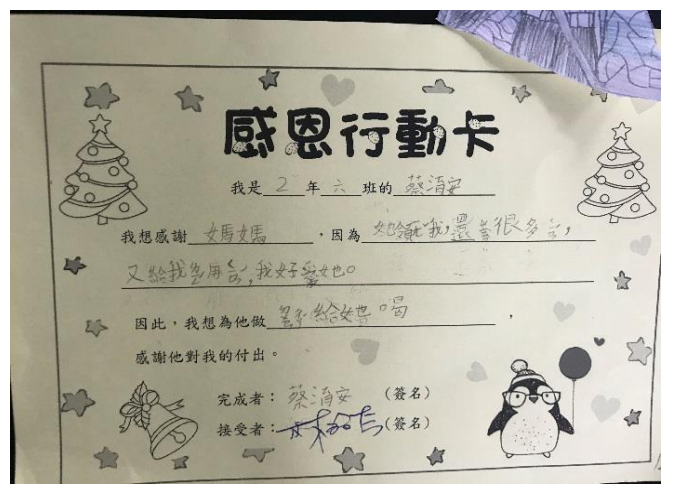 感恩行動卡
我是2年六班的蔡淯安
我想感謝媽媽,因為 我,還 很多 ,
又給我 用 ,我好愛她。
因此,我想為他做 給她喝,
感謝他對我的付出。
完成者:蔡淯安(簽名)
接受者:(簽名)